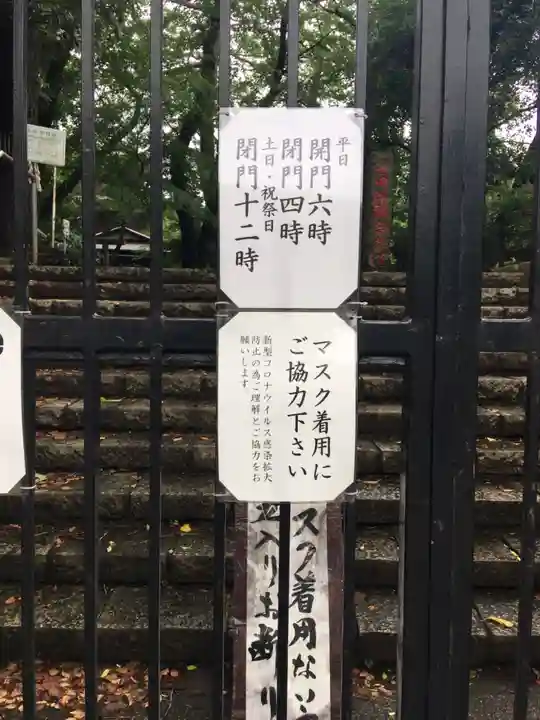 平日
開門六時
閉門四時
土日・祝祭日
閉門十二時
マスク着用に
ご協力下さい
新型コロナウイルス感染拡大
防止の為ご理解とご協力をお
願いします
スク着用な
入りお断り